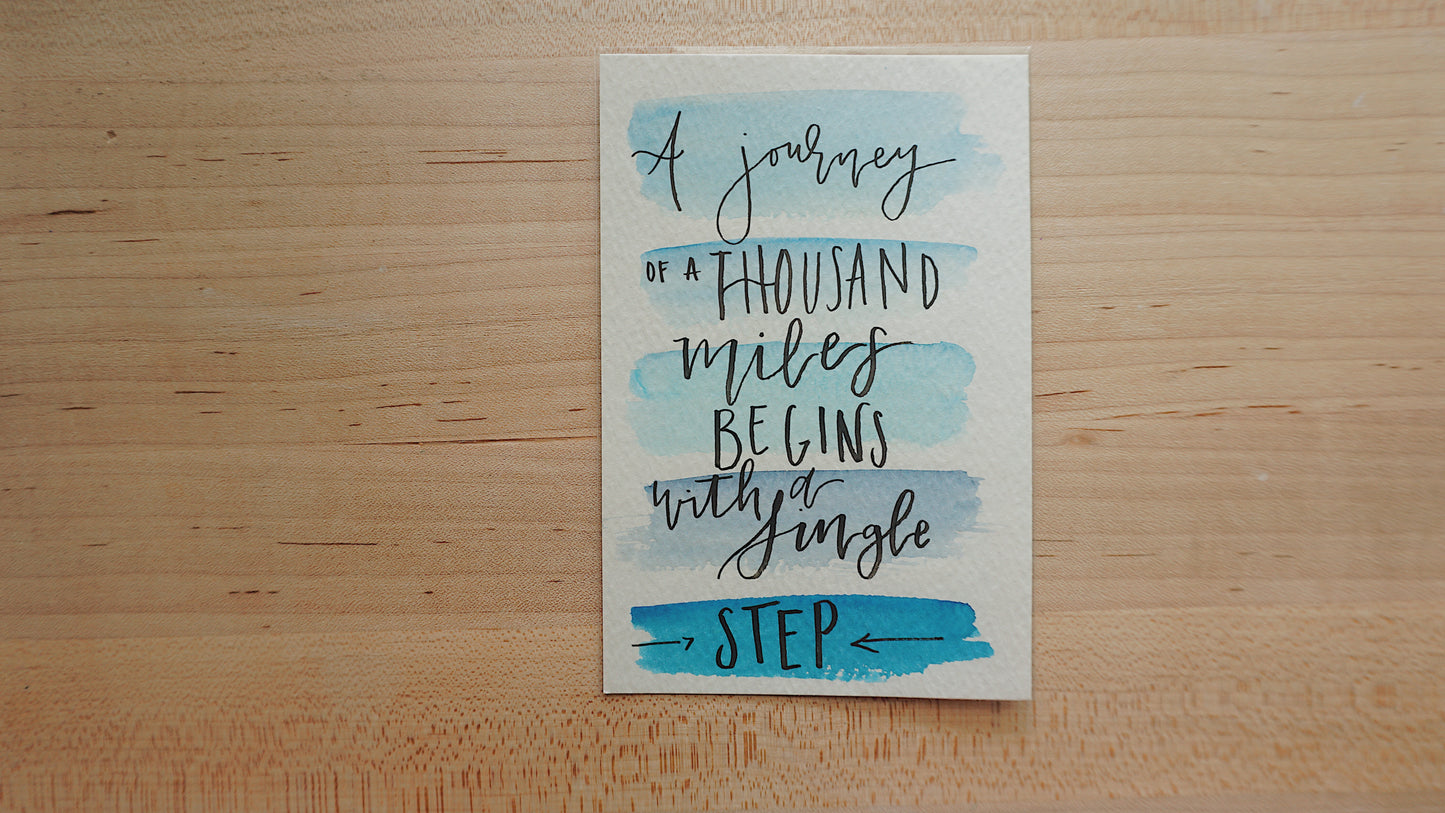 A journey
OF A THOUSAND
miles
BEGINS
with a
single
STEP